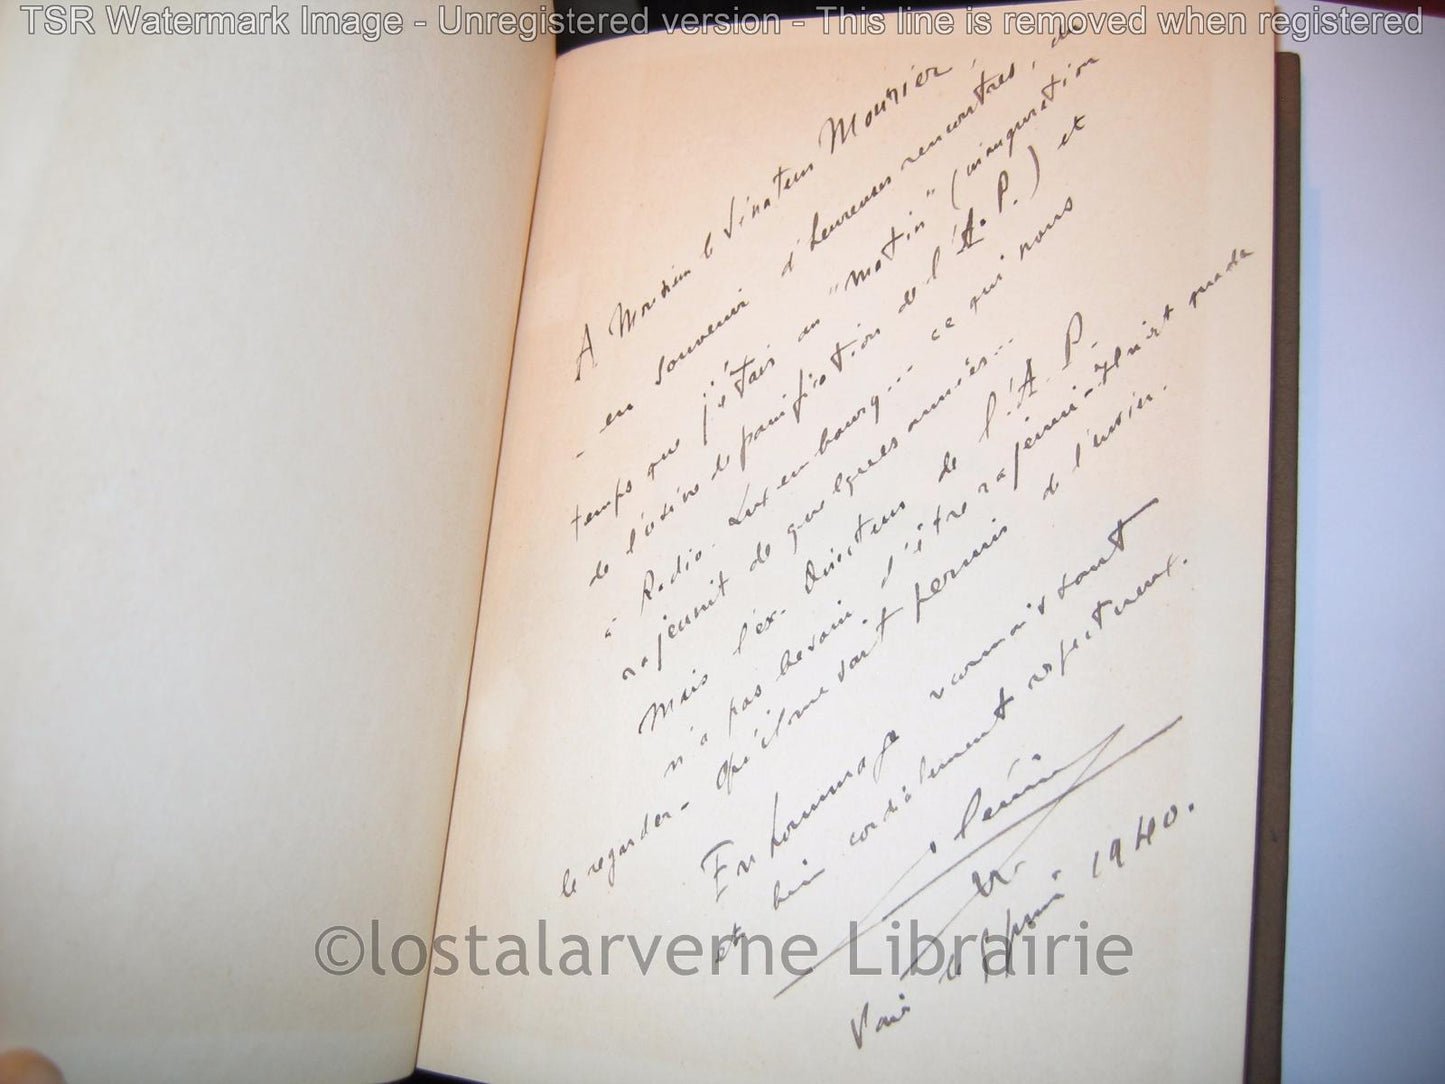 TSR Watermark Image - Unregistered version - This line is removed when registered
A Monsieur le Sénateur Mounier,
- en souvenir d'heureuses rencontres, du
temps que j'étais au "Matin" (inauguration
de l'usine de panification de l'A.P.) et
à Radio-Luxembourg... ce qui nous
rajeunit de quelques années...
Mais l'ex-Directeur de l'A.P.
n'a pas besoin d'être rajeuni - Il n'est que de
le regarder - Qu'il me soit permis de l'envier.
En hommage reconnaissant
et bien cordialement respectueux.
Paris le 1940.
©lostalarverne Librairie